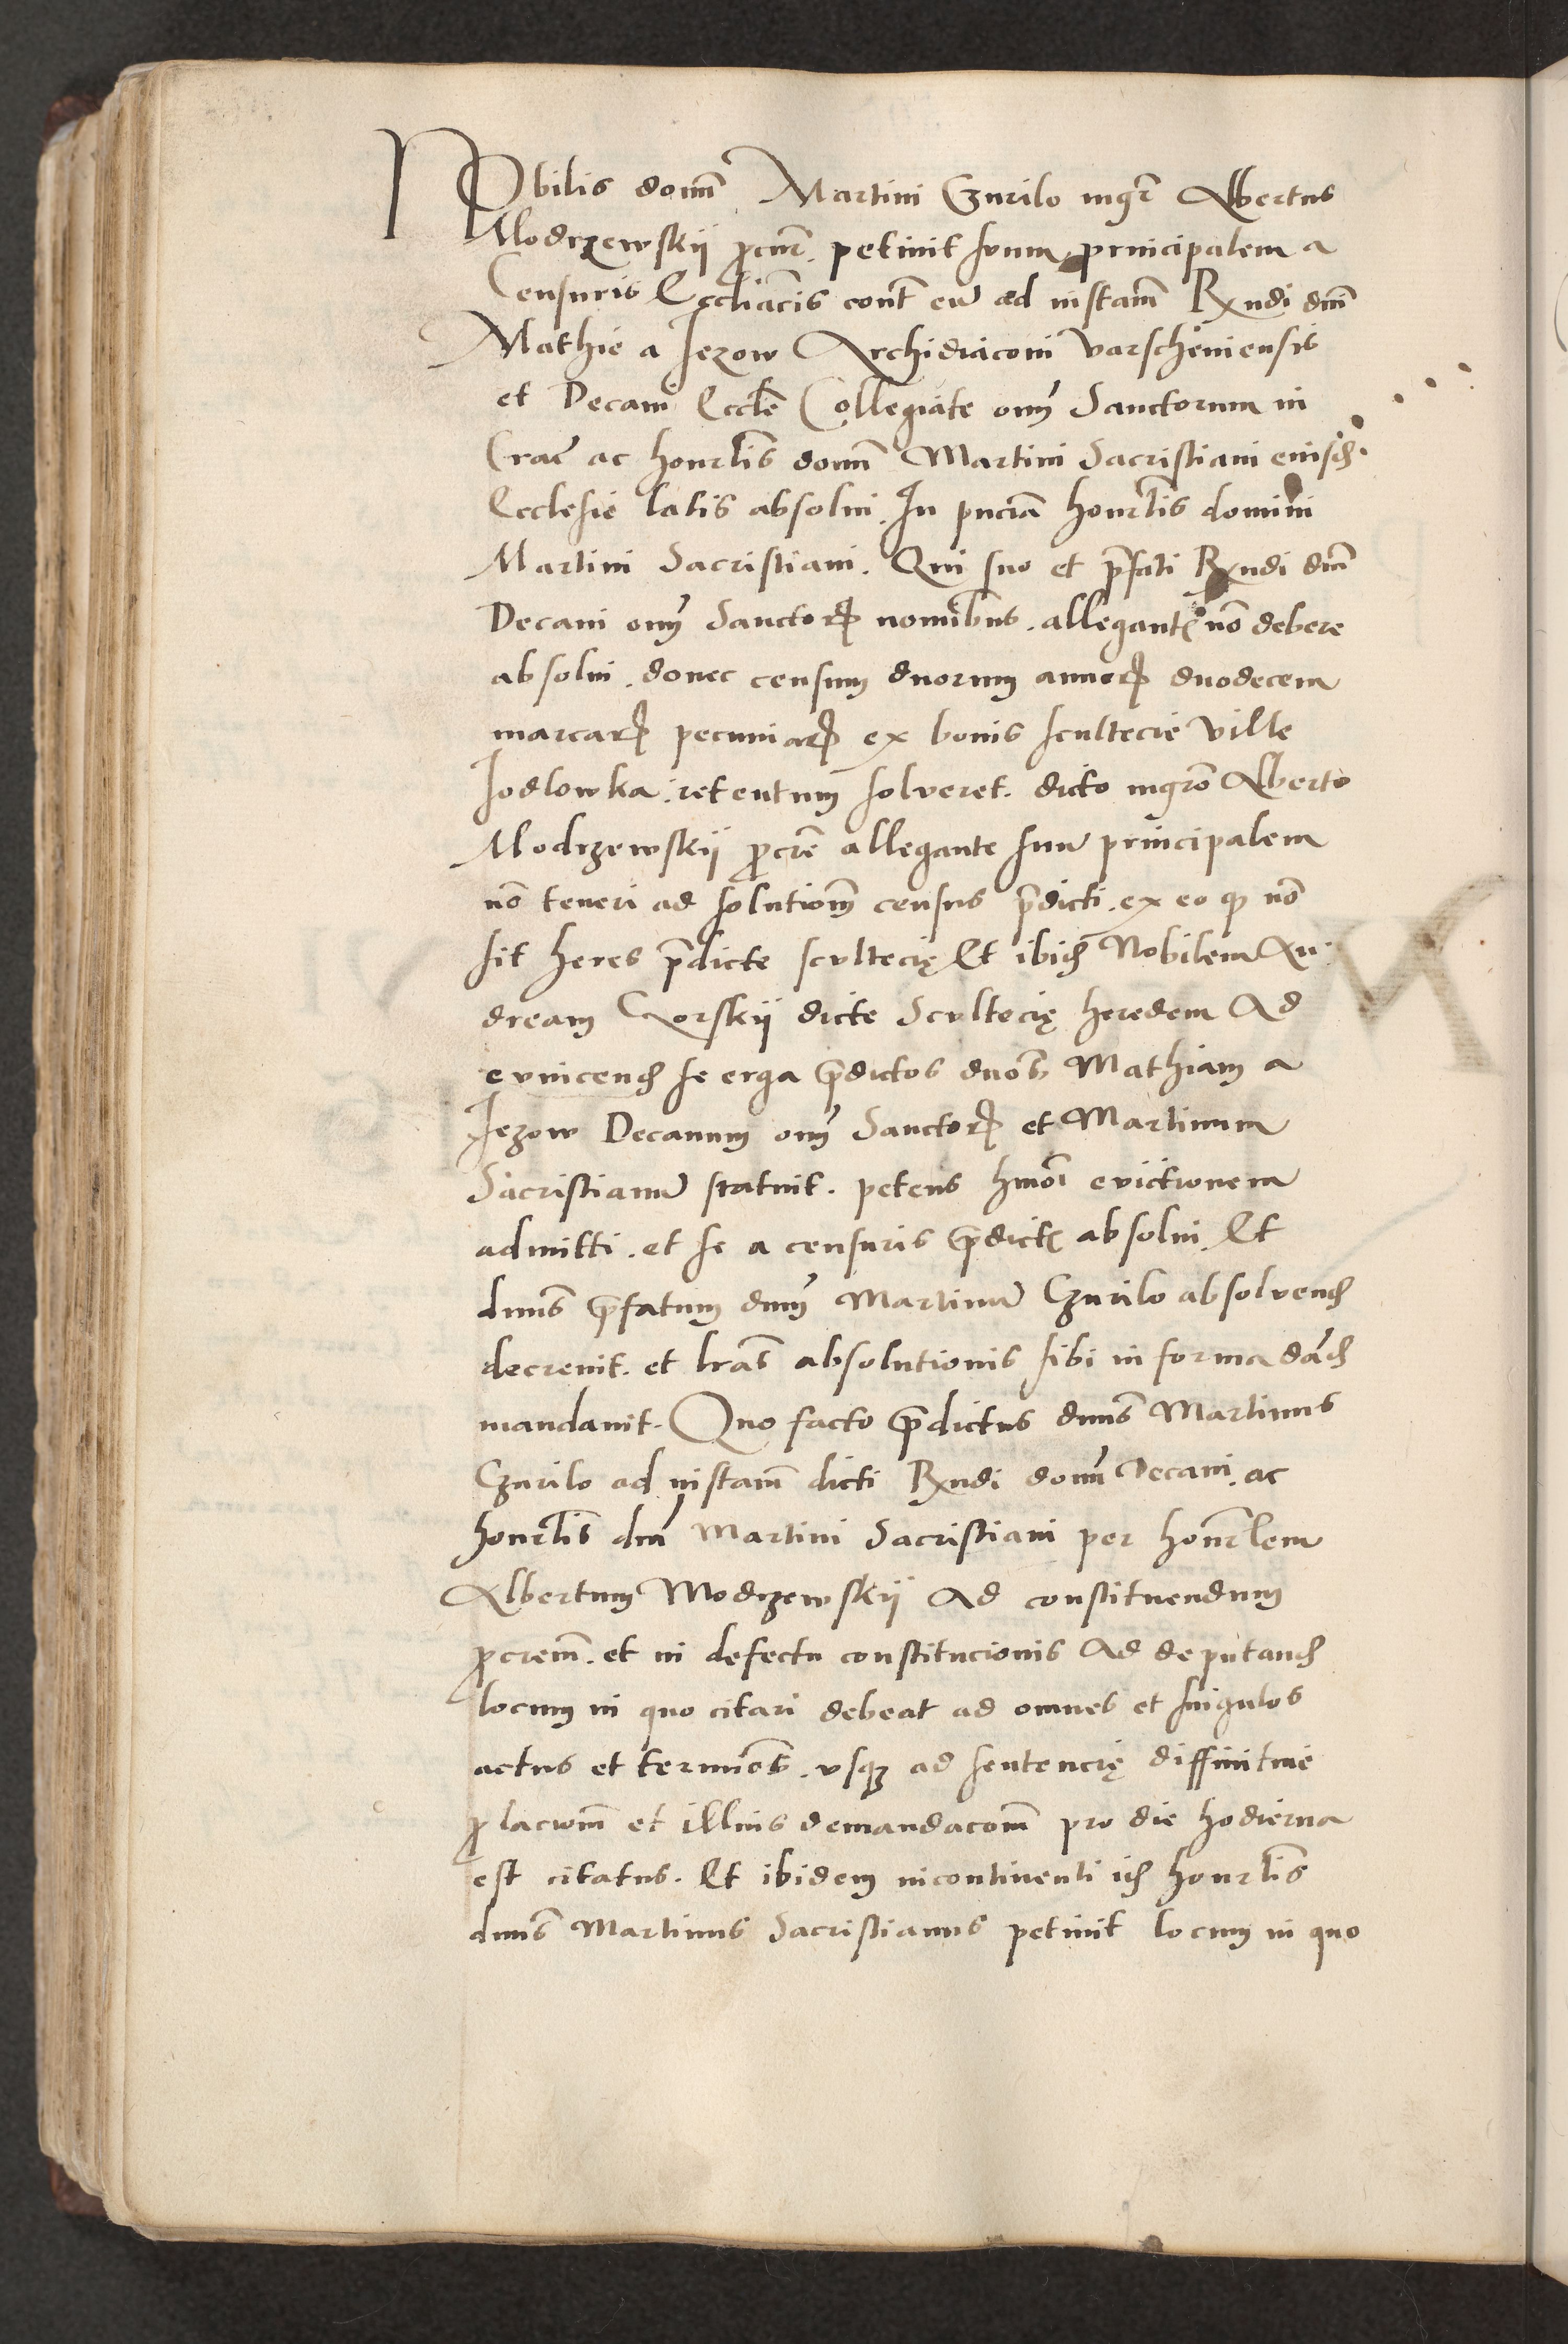 Nobilis domi Martini Czurilo mgr̄ Albertus
Modrzewskij procur̄. petiuit suum principalem a
Censuris Eccliācis cont̄ eū ad instam̄ Rx̄ndi dnī
Mathie a Jezow Archidiaconi varscheuiensis
et Decani Eccl̄e Collegiate om̄ Sanctorum in
Crac̄ ac honrl̄is domī Martini Sacristiani eiusd̄.
Ecclesie latis absolui. In pn̄cia honrl̄is domini
Martini Sacristiani. Qui suo et p̄fati Rx̄ndi dnī
Decani om̄ Sanctorꝝ nominibus. allegantꝭ nō debere
absolui. donec censum duorum annorꝝ duodecem
marcarꝝ pecuniarꝝ ex bonis scultecie ville
Jodlowka. retentum solueret. dicto mgrō Alberto
Modrzewskij procrē allegante suū principalem
nō teneri ad solutiom̄ census p̄dicti. ex eo ꝙ nō
sit heres p̄dicte scultecię Et ibid̄ Nobilem An-
dream Gorskij dicte Scultecię heredem Ad
euincend̄ se erga p̄dictos dnōs Mathiam a
Jezow Decanum om̄ Sanctorꝝ et Martinum
Sacristianū statuit. petens hmōi euictionem
admitti. et se a censuris p̄dictꝭ absolui. Et
dnus̄ p̄fatum dnm̄ Martinū Czurilo absoluend̄
decreuit. et lrās absolutionis sibi in forma dād̄
mandauit. Quo facto p̄dictus dnus̄ Martinus
Czurilo ad instam̄ dicti Rx̄ndi domī Decani. ac
honrl̄is dnī Martini Sacristiani per honr̄lem
Albertum Modrzewskij Ad constituendum
procrem̄. et in defectu constitucionis Ad deputand̄
locum in quo citari debeat ad omnes et singulos
actus et terminōs. vsqꝫ ad sentencię diffinitiue
prolaciom̄ et illius demandacom̄ pro die hodierna
est citatus. Et ibidem incontinenti id̄ honrl̄is
dnus̄ Martinus Sacristianus petiuit locum in quo